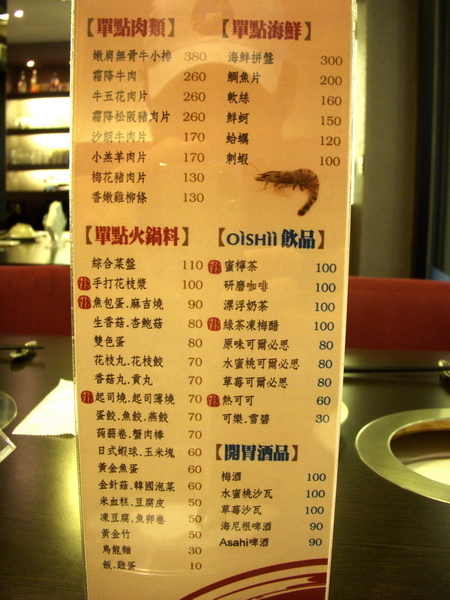 【單點肉類】
嫩肩無骨牛小排 380
霜降牛肉 260
牛五花肉片 260
霜降松阪豬肉片 260
沙朗牛肉片 170
小羔羊肉片 170
梅花豬肉片 130
香嫩雞柳條 130
【單點海鮮】
海鮮拼盤 300
鯛魚片 200
軟絲 160
鮮蚵 150
蛤蠣 120
刺蝦 100
【單點火鍋料】
綜合菜盤 110
手打花枝漿 100
魚包蛋.麻吉燒 90
生香菇.杏鮑菇 80
雙色蛋 80
花枝丸.花枝餃 70
香菇丸.貢丸 70
起司燒.起司薄燒 70
蛋餃.魚餃.燕餃 70
蒟蒻卷.蟹肉棒 70
日式蝦球.玉米塊 60
黃金魚蛋 60
金針菇.韓國泡菜 60
米血糕.豆腐皮 50
凍豆腐.魚卵卷 50
黃金竹 50
烏龍麵 30
飯.雞蛋 10
【OISHII 飲品】
蜜檸茶 100
研磨咖啡 100
漂浮奶茶 100
綠茶凍梅醋 100
原味可爾必思 80
水蜜桃可爾必思 80
草莓可爾必思 80
熱可可 60
可樂.雪碧 30
【開胃酒品】
梅酒 100
水蜜桃沙瓦 100
草莓沙瓦 100
海尼根啤酒 90
Asahi啤酒 90